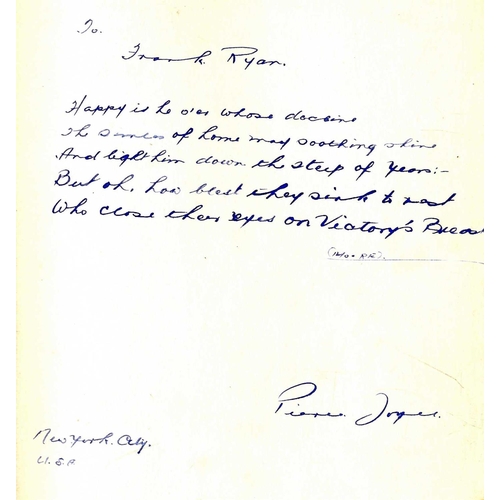 To.
Frank Ryan.
Happy is he o'er whose decline
the smiles of home may soothing shine
And light him down the steep of years:-
But oh, how blest they sink to rest
Who close their eyes on Victory's Breast
(MOORE).
New York. City.